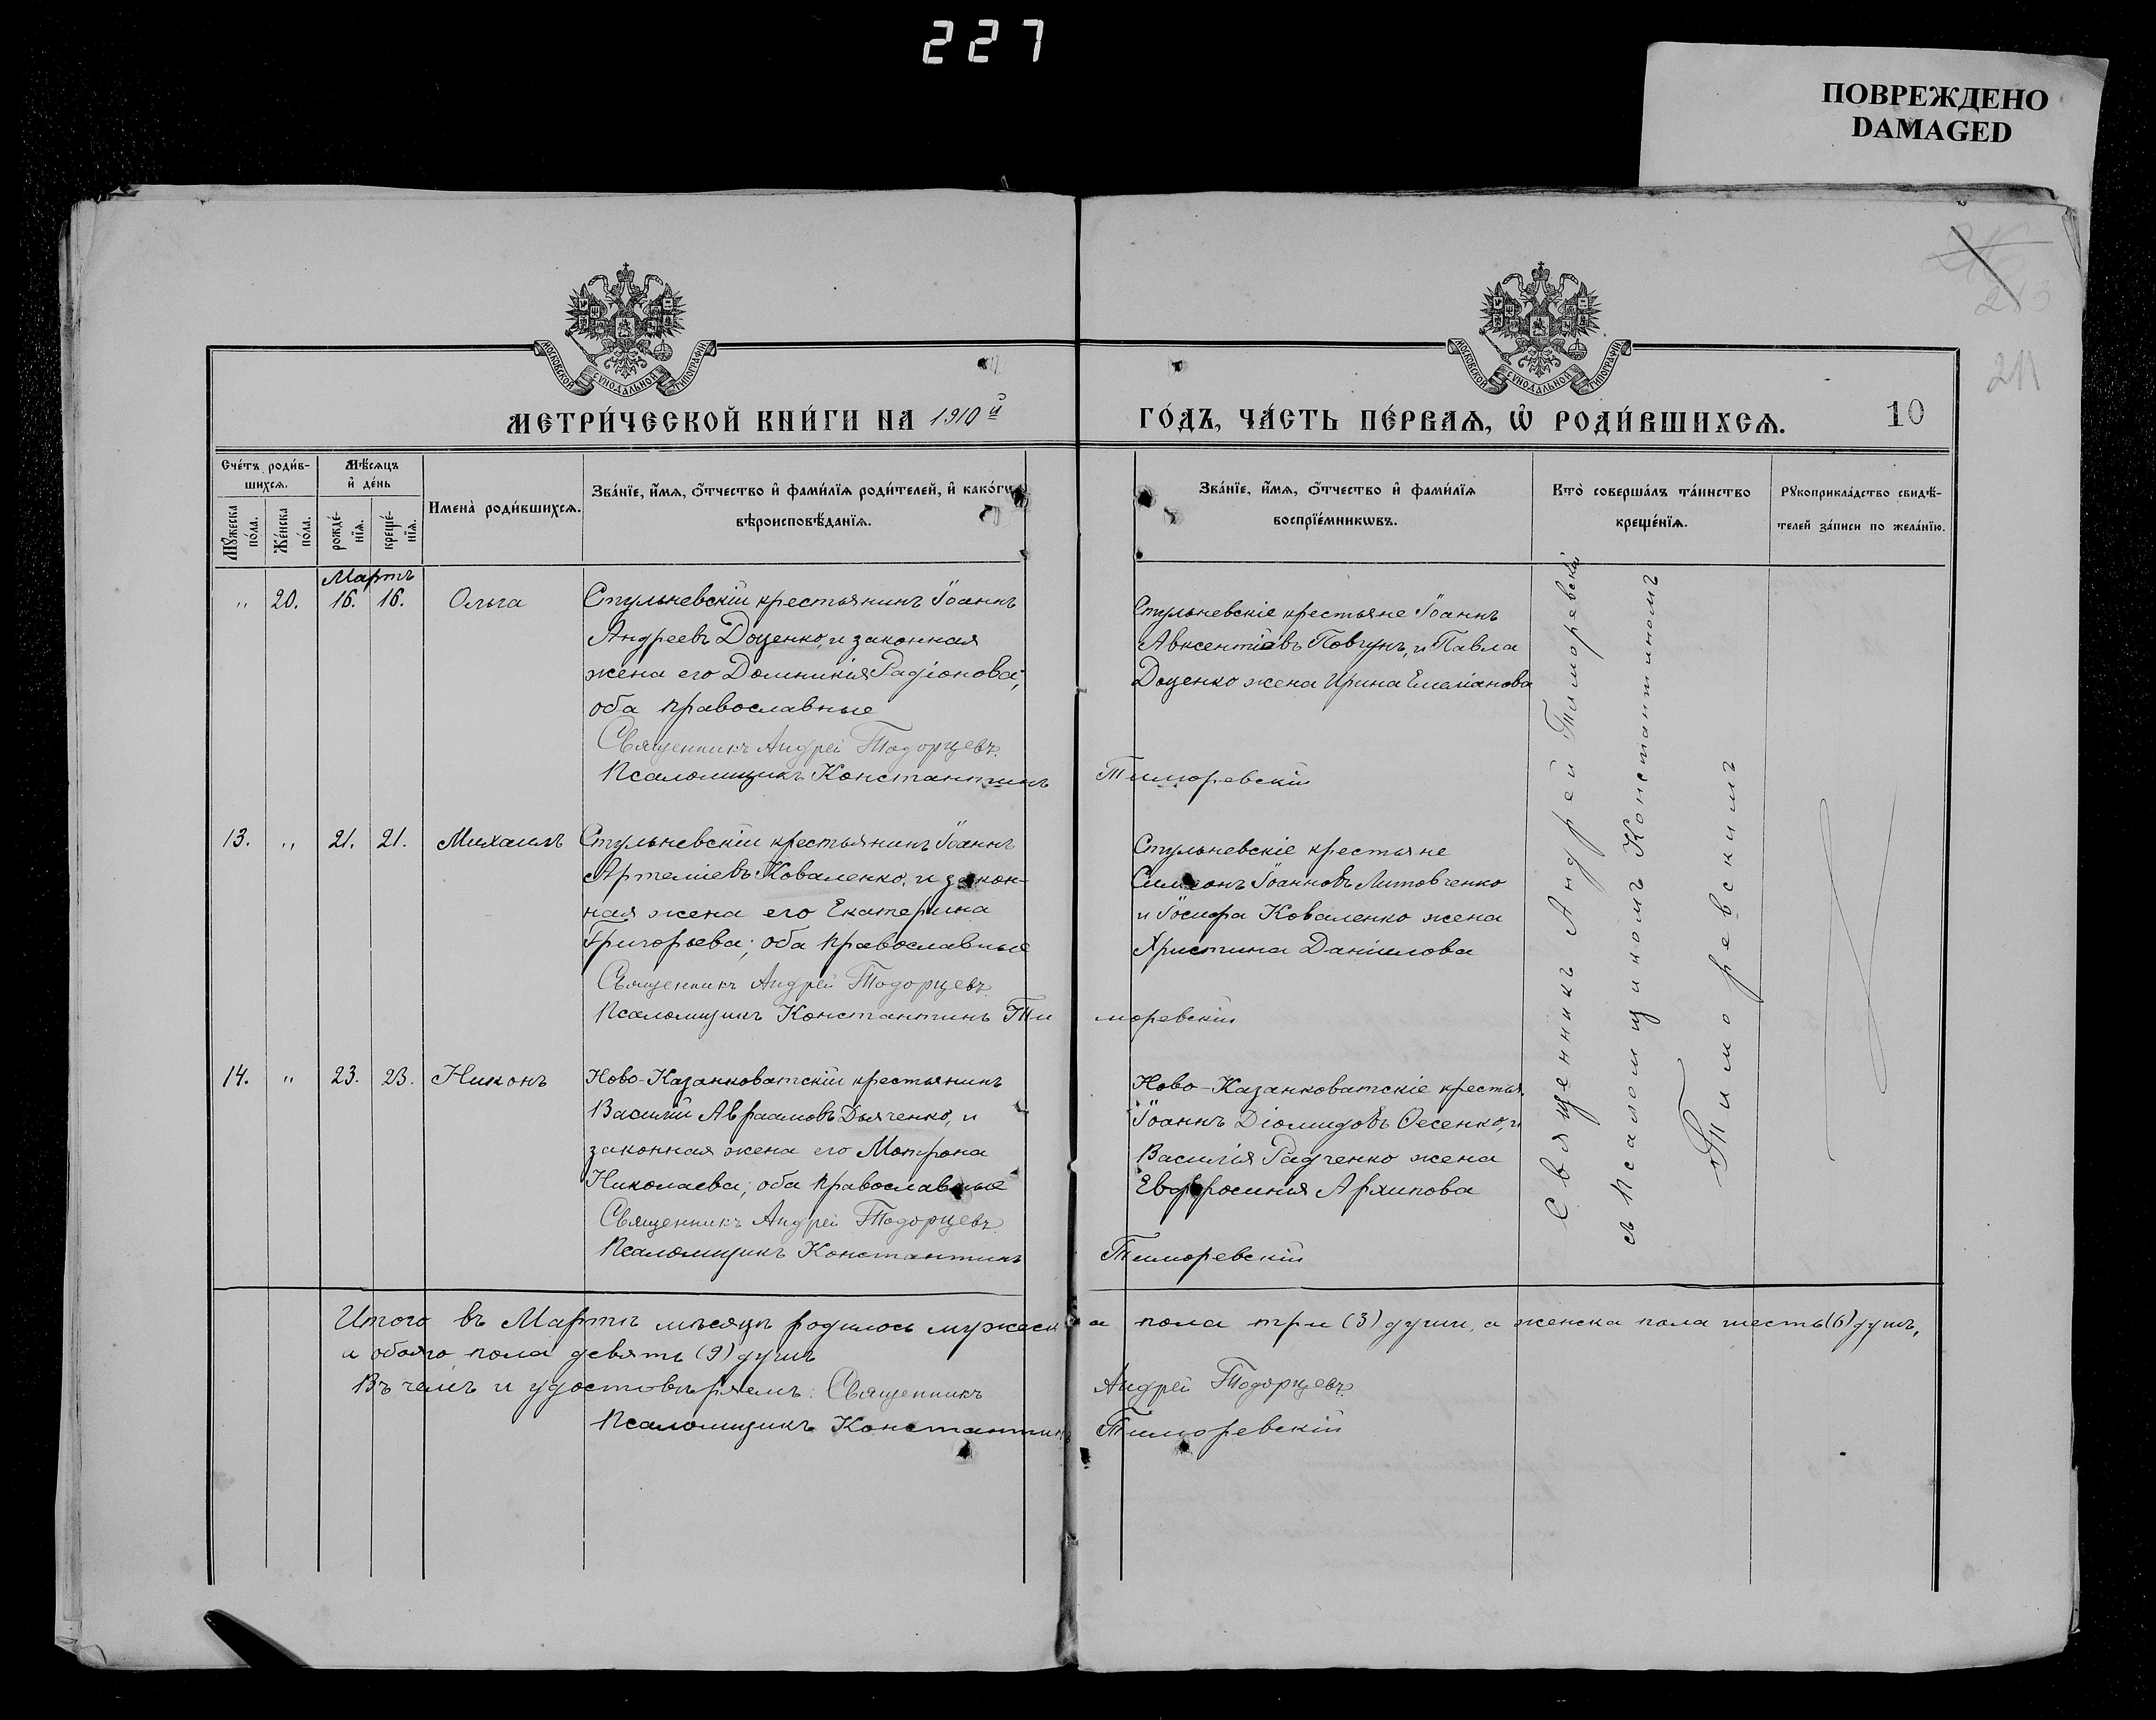 227
ПОВРЕЖДЕНО
DAMAGED
211
МОСКОВСКОЙ СѴНОДАЛЬНОЙ ТИПОГРАФІИ
МОСКОВСКОЙ СѴНОДАЛЬНОЙ ТИПОГРАФІИ
МЕТРИ́ЧЕСКОЙ КНИ́ГИ НА 1910й
ГО́ДЪ, ЧА́СТЬ ПЕ́РВАѦ, Ѡ҆ РОДИ́ВШИХСѦ.
10
Сче́тъ роди́в-
шихсѧ.
Мѣ́сѧцъ
и҆ де́нь
Мꙋ́жеска
по́ла.
Же́нска
по́ла.
рожде́-
нїѧ.
креще́-
нїѧ.
Имена̀ роди́вшихсѧ.
Зва́нїе, и҆́мѧ, ѻ҆́тчество и҆ фами́лїѧ роди́телей, и҆ како́гѡ
вѣроисповѣ́данїѧ.
Зва́нїе, и҆́мѧ, ѻ҆́тчество и҆ фами́лїѧ
воспрїе́мниковъ.
Кто̀ соверша́лъ та́инство
креще́нїѧ.
Рꙋкоприкла́дство свидѣ́-
телей за́писи по жела́нїю.
Мартъ
" 20. 16. 16. Ольга
Стульневскій крестьянинъ Іоаннъ
Андреевъ Доценко, и законная
жена его Домникія Радіонова;
оба православные
Священникъ Андрей Тодорцевъ.
Псаломщикъ Константинъ Тиморевскій
Стульневскіе крестьяне Іоаннъ
Авксентіевъ Повчунъ, и Павла
Доценко жена Ирина Емеліанова
13. " 21. 21. Михаилъ
Стульневскій крестьянинъ Іоаннъ
Артеміевъ Коваленко, и закон-
ная жена его Екатерина
Григорьева; оба православные
Священникъ Андрей Тодорцевъ.
Псаломщикъ Константинъ Тиморевскій
Стульневскіе крестьяне
Симеонъ Іоанновъ Литовченко
и Іосифа Коваленко жена
Христина Даніилова
14. " 23. 23. Никонъ
Ново-Казанковатскій крестьянинъ
Василій Авраамовъ Дьяченко, и
законная жена его Матрона
Николаева; оба православные
Священникъ Андрей Тодорцевъ.
Псаломщикъ Константинъ Тиморевскій
Ново-Казанковатскіе крестья.
Іоаннъ Діомидовъ Фесенко, и
Василія Радченко жена
Евфросинія Архипова
Священникъ Андрей Тиморевскій
съ Псаломщикомъ Константиномъ
Тиморевскимъ
Итого въ Мартѣ мѣсяцѣ родилось мужеска пола три (3) души, а женска пола шесть (6) душъ,
а обоего пола девять (9) душъ
Въ чемъ и удостовѣряемъ: Священникъ Андрей Тодорцевъ.
Псаломщикъ Константинъ Тиморевскій